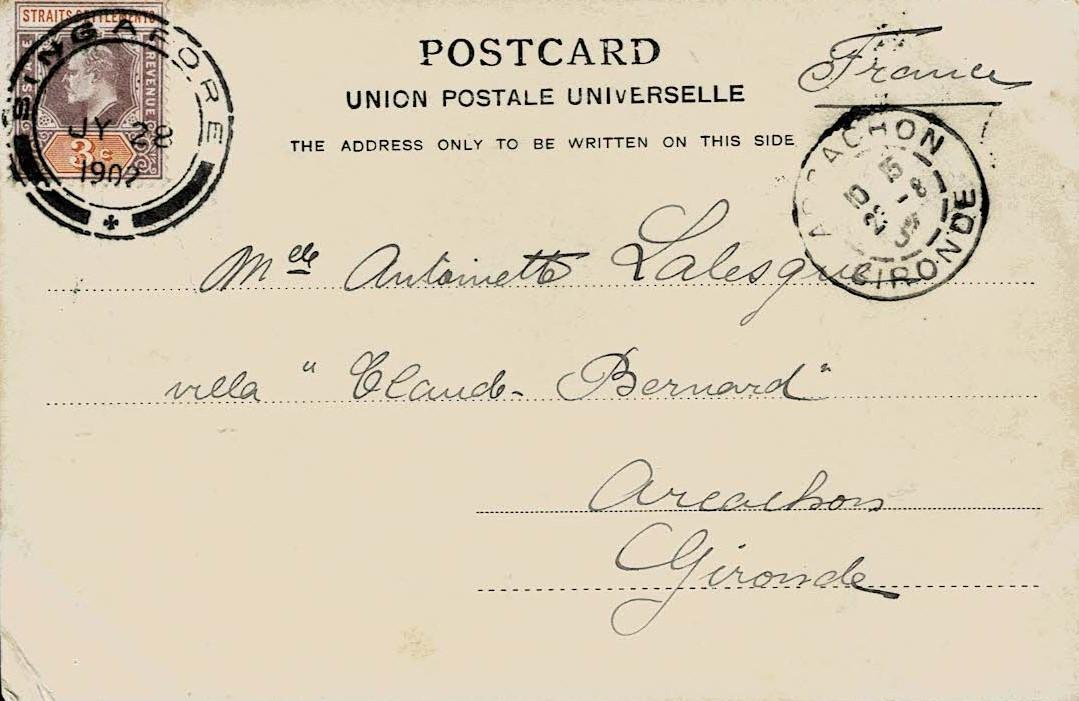 STRAITS SETTLEMENTS
POSTAGE
REVENUE
3c
SINGAPORE
JY 28
1902
POSTCARD
UNION POSTALE UNIVERSELLE
THE ADDRESS ONLY TO BE WRITTEN ON THIS SIDE
France
ARCACHON
GIRONDE
Melle Antoinette Lalesque
villa "Claude-Bernard"
Arcachon
Gironde